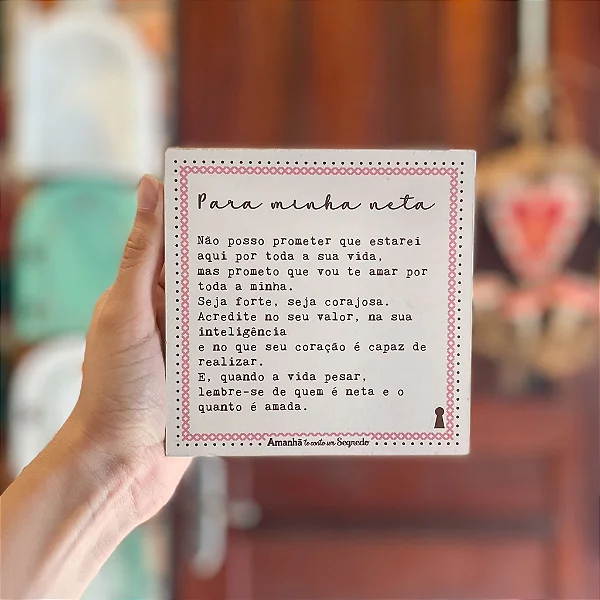 Para minha neta
Não posso prometer que estarei
aqui por toda a sua vida,
mas prometo que vou te amar por
toda a minha.
Seja forte, seja corajosa.
Acredite no seu valor, na sua
inteligência
e no que seu coração é capaz de
realizar.
E, quando a vida pesar,
lembre-se de quem é neta e o
quanto é amada.
Amanhã te conto um Segredo